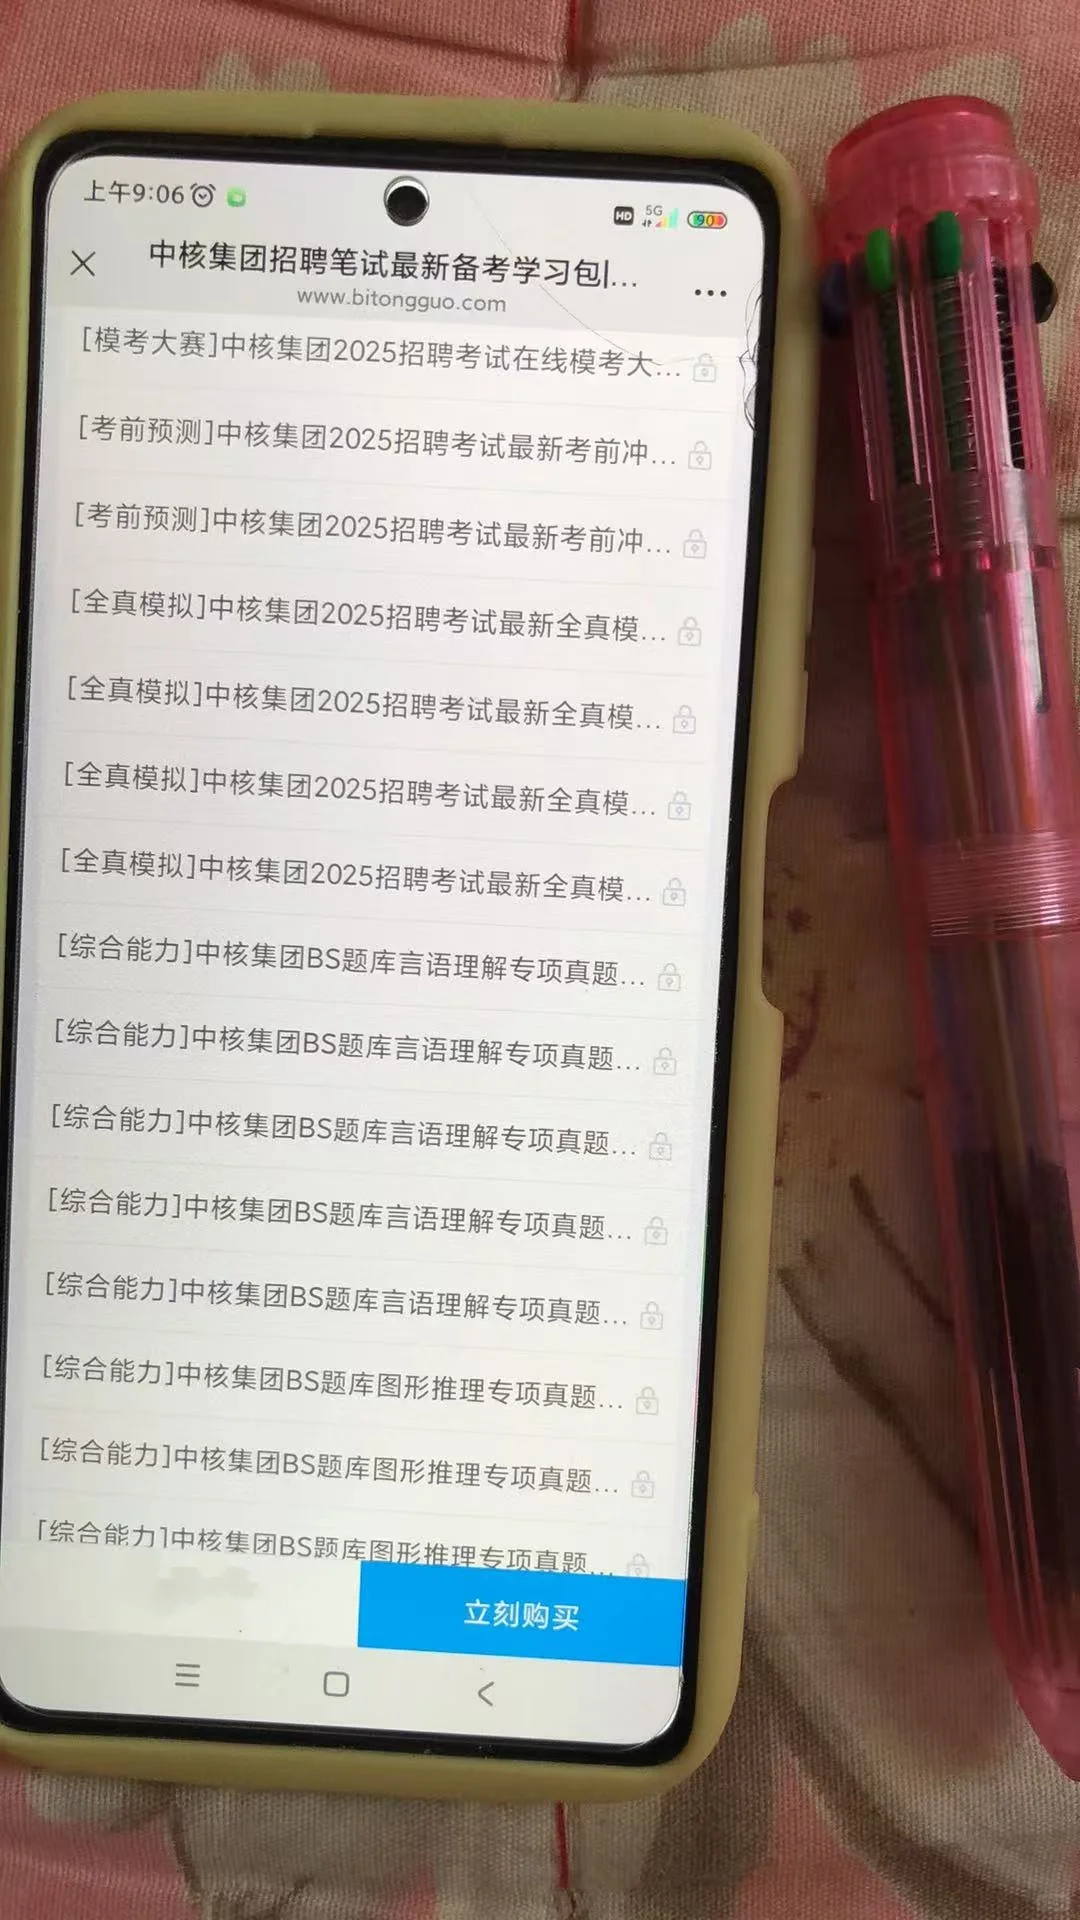 上午9:06
HD 5G 90
中核集团招聘笔试最新备考学习包|...
www.bitongguo.com
[模考大赛]中核集团2025招聘考试在线模考大...
[考前预测]中核集团2025招聘考试最新考前冲...
[考前预测]中核集团2025招聘考试最新考前冲...
[全真模拟]中核集团2025招聘考试最新全真模...
[全真模拟]中核集团2025招聘考试最新全真模...
[全真模拟]中核集团2025招聘考试最新全真模...
[全真模拟]中核集团2025招聘考试最新全真模...
[综合能力]中核集团BS题库言语理解专项真题...
[综合能力]中核集团BS题库言语理解专项真题...
[综合能力]中核集团BS题库言语理解专项真题...
[综合能力]中核集团BS题库言语理解专项真题...
[综合能力]中核集团BS题库言语理解专项真题...
[综合能力]中核集团BS题库图形推理专项真题...
[综合能力]中核集团BS题库图形推理专项真题...
[综合能力]中核集团BS题库图形推理专项真题...
立刻购买